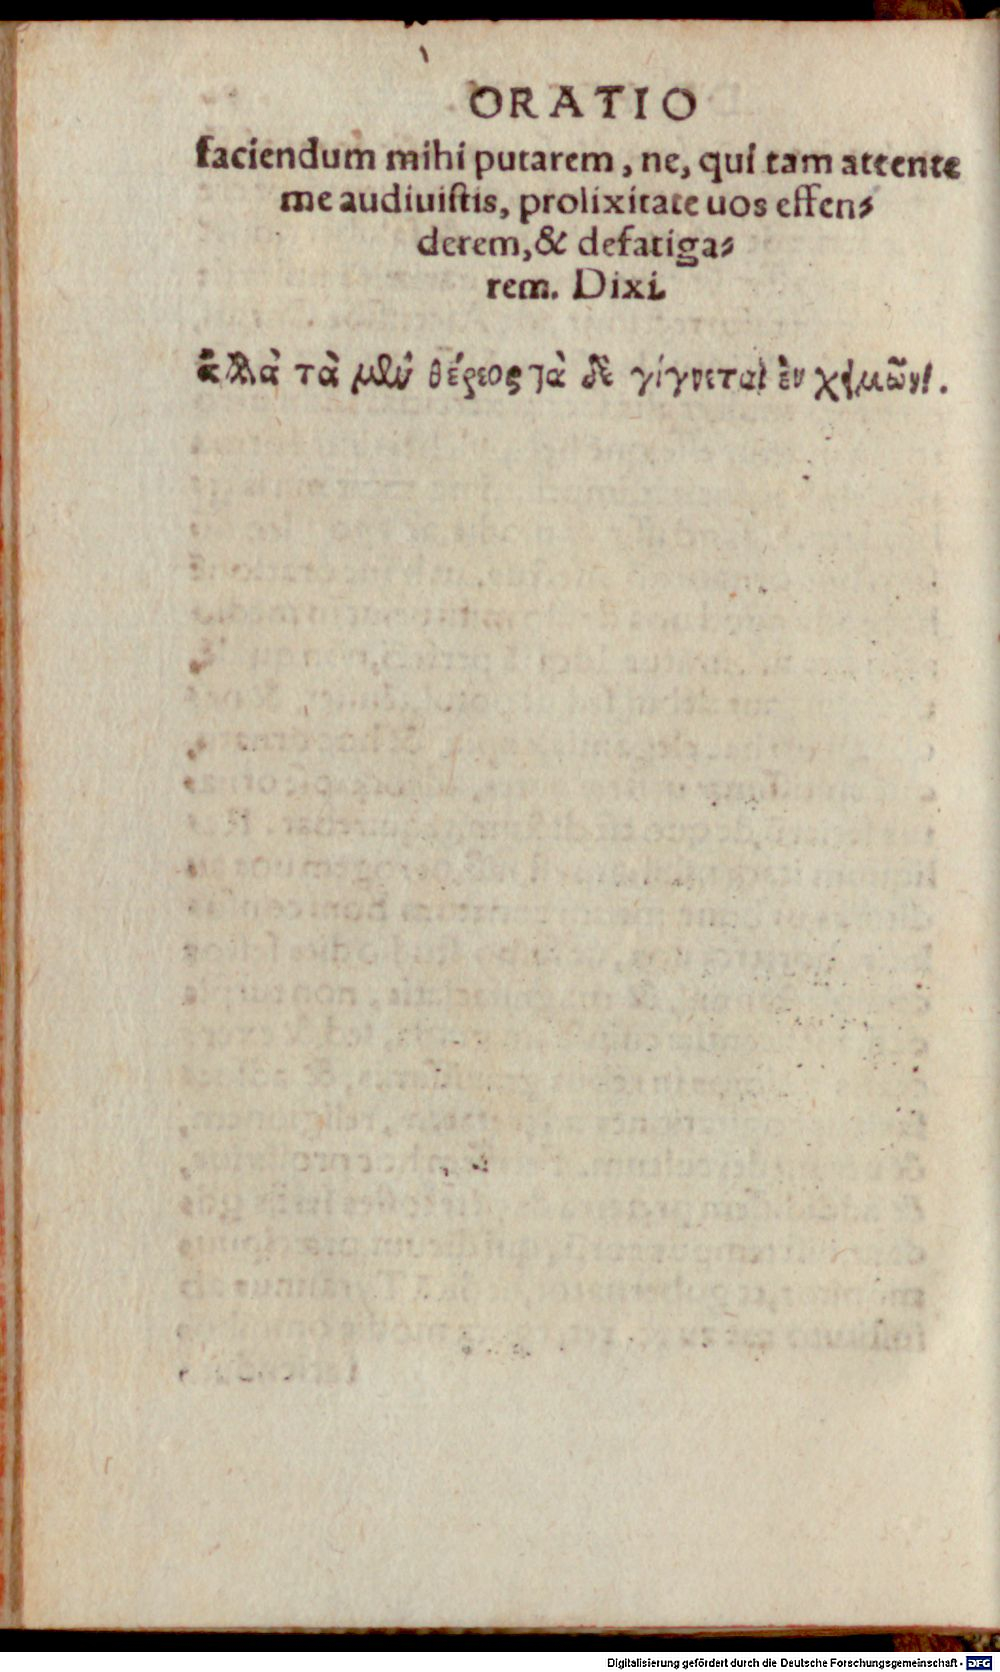 ORATIO
faciendum mihi putarem, ne, qui tam attente
me audiuistis, prolixitate uos effen⸗
derem, & defatiga⸗
rem. Dixi.
ἄλλα τὰ μὲν θέρεος τὰ δὲ γίγνεται ἐν χειμῶνι.
Digitalisierung gefördert durch die Deutsche Forschungsgemeinschaft - DFG